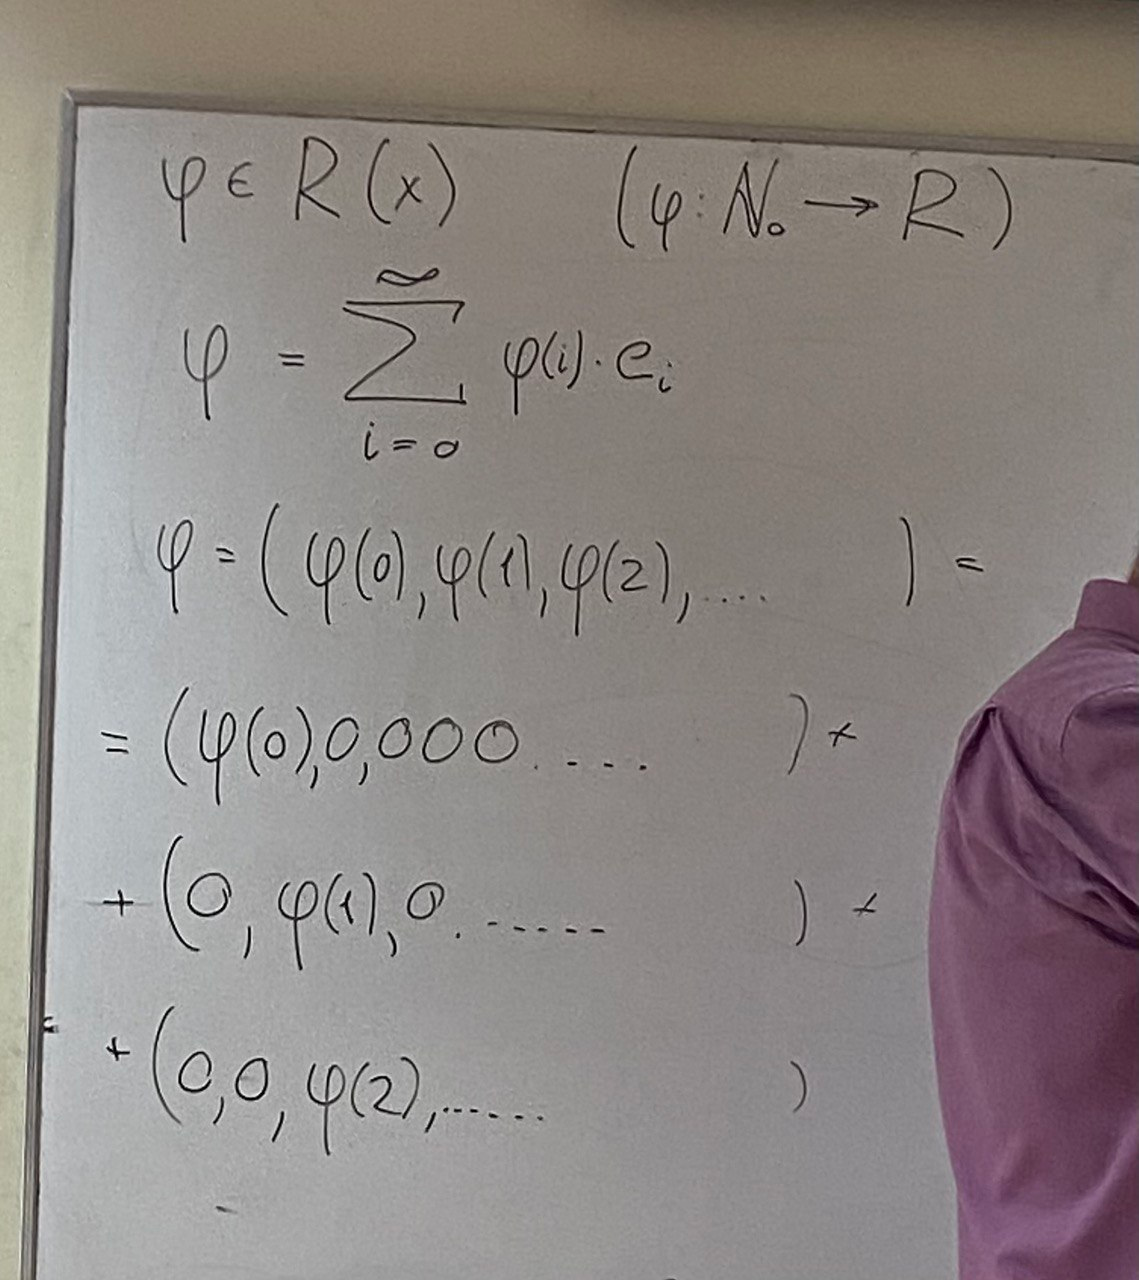 φ ∈ R(x) (φ: N₀ → R)
φ = ∑_{i=0}^{∞} φ(i) · eᵢ
φ = ( φ(0), φ(1), φ(2), .... ) =
= (φ(0), 0, 0 0 0 .... ) +
+ (0, φ(1), 0. ...... ) +
+ (0, 0, φ(2), ....... )